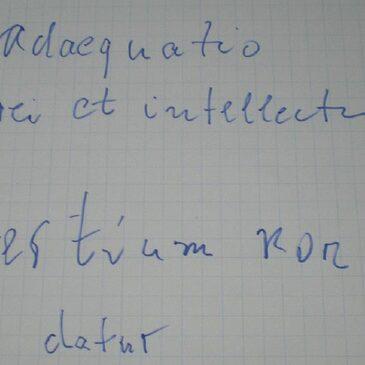 adaequatio
rei et intellectu
tertium non
datur